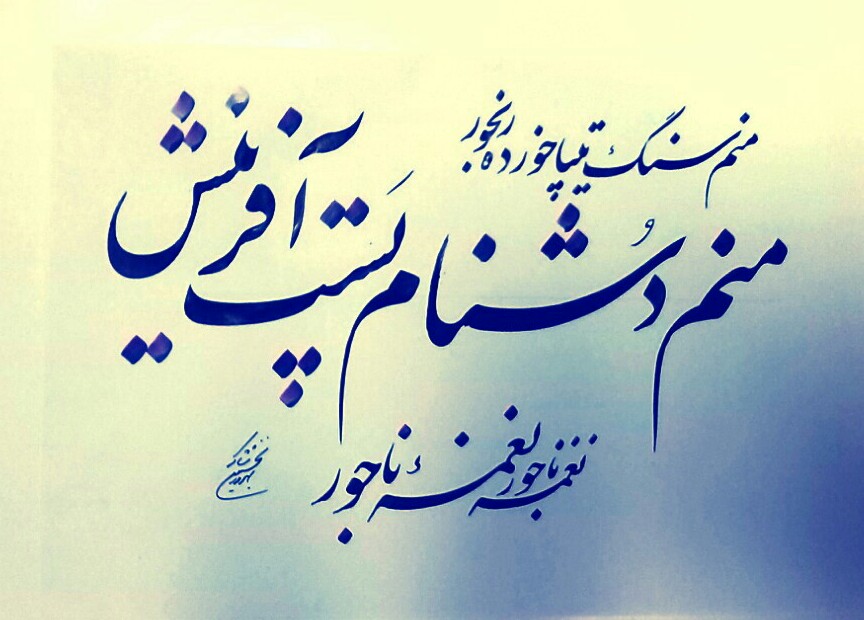 منم سنگ تیپاخوردهٔ رنجور
منم دُشنام پَست آفرینش
نغمه ناجور نغمهٔ ناجور